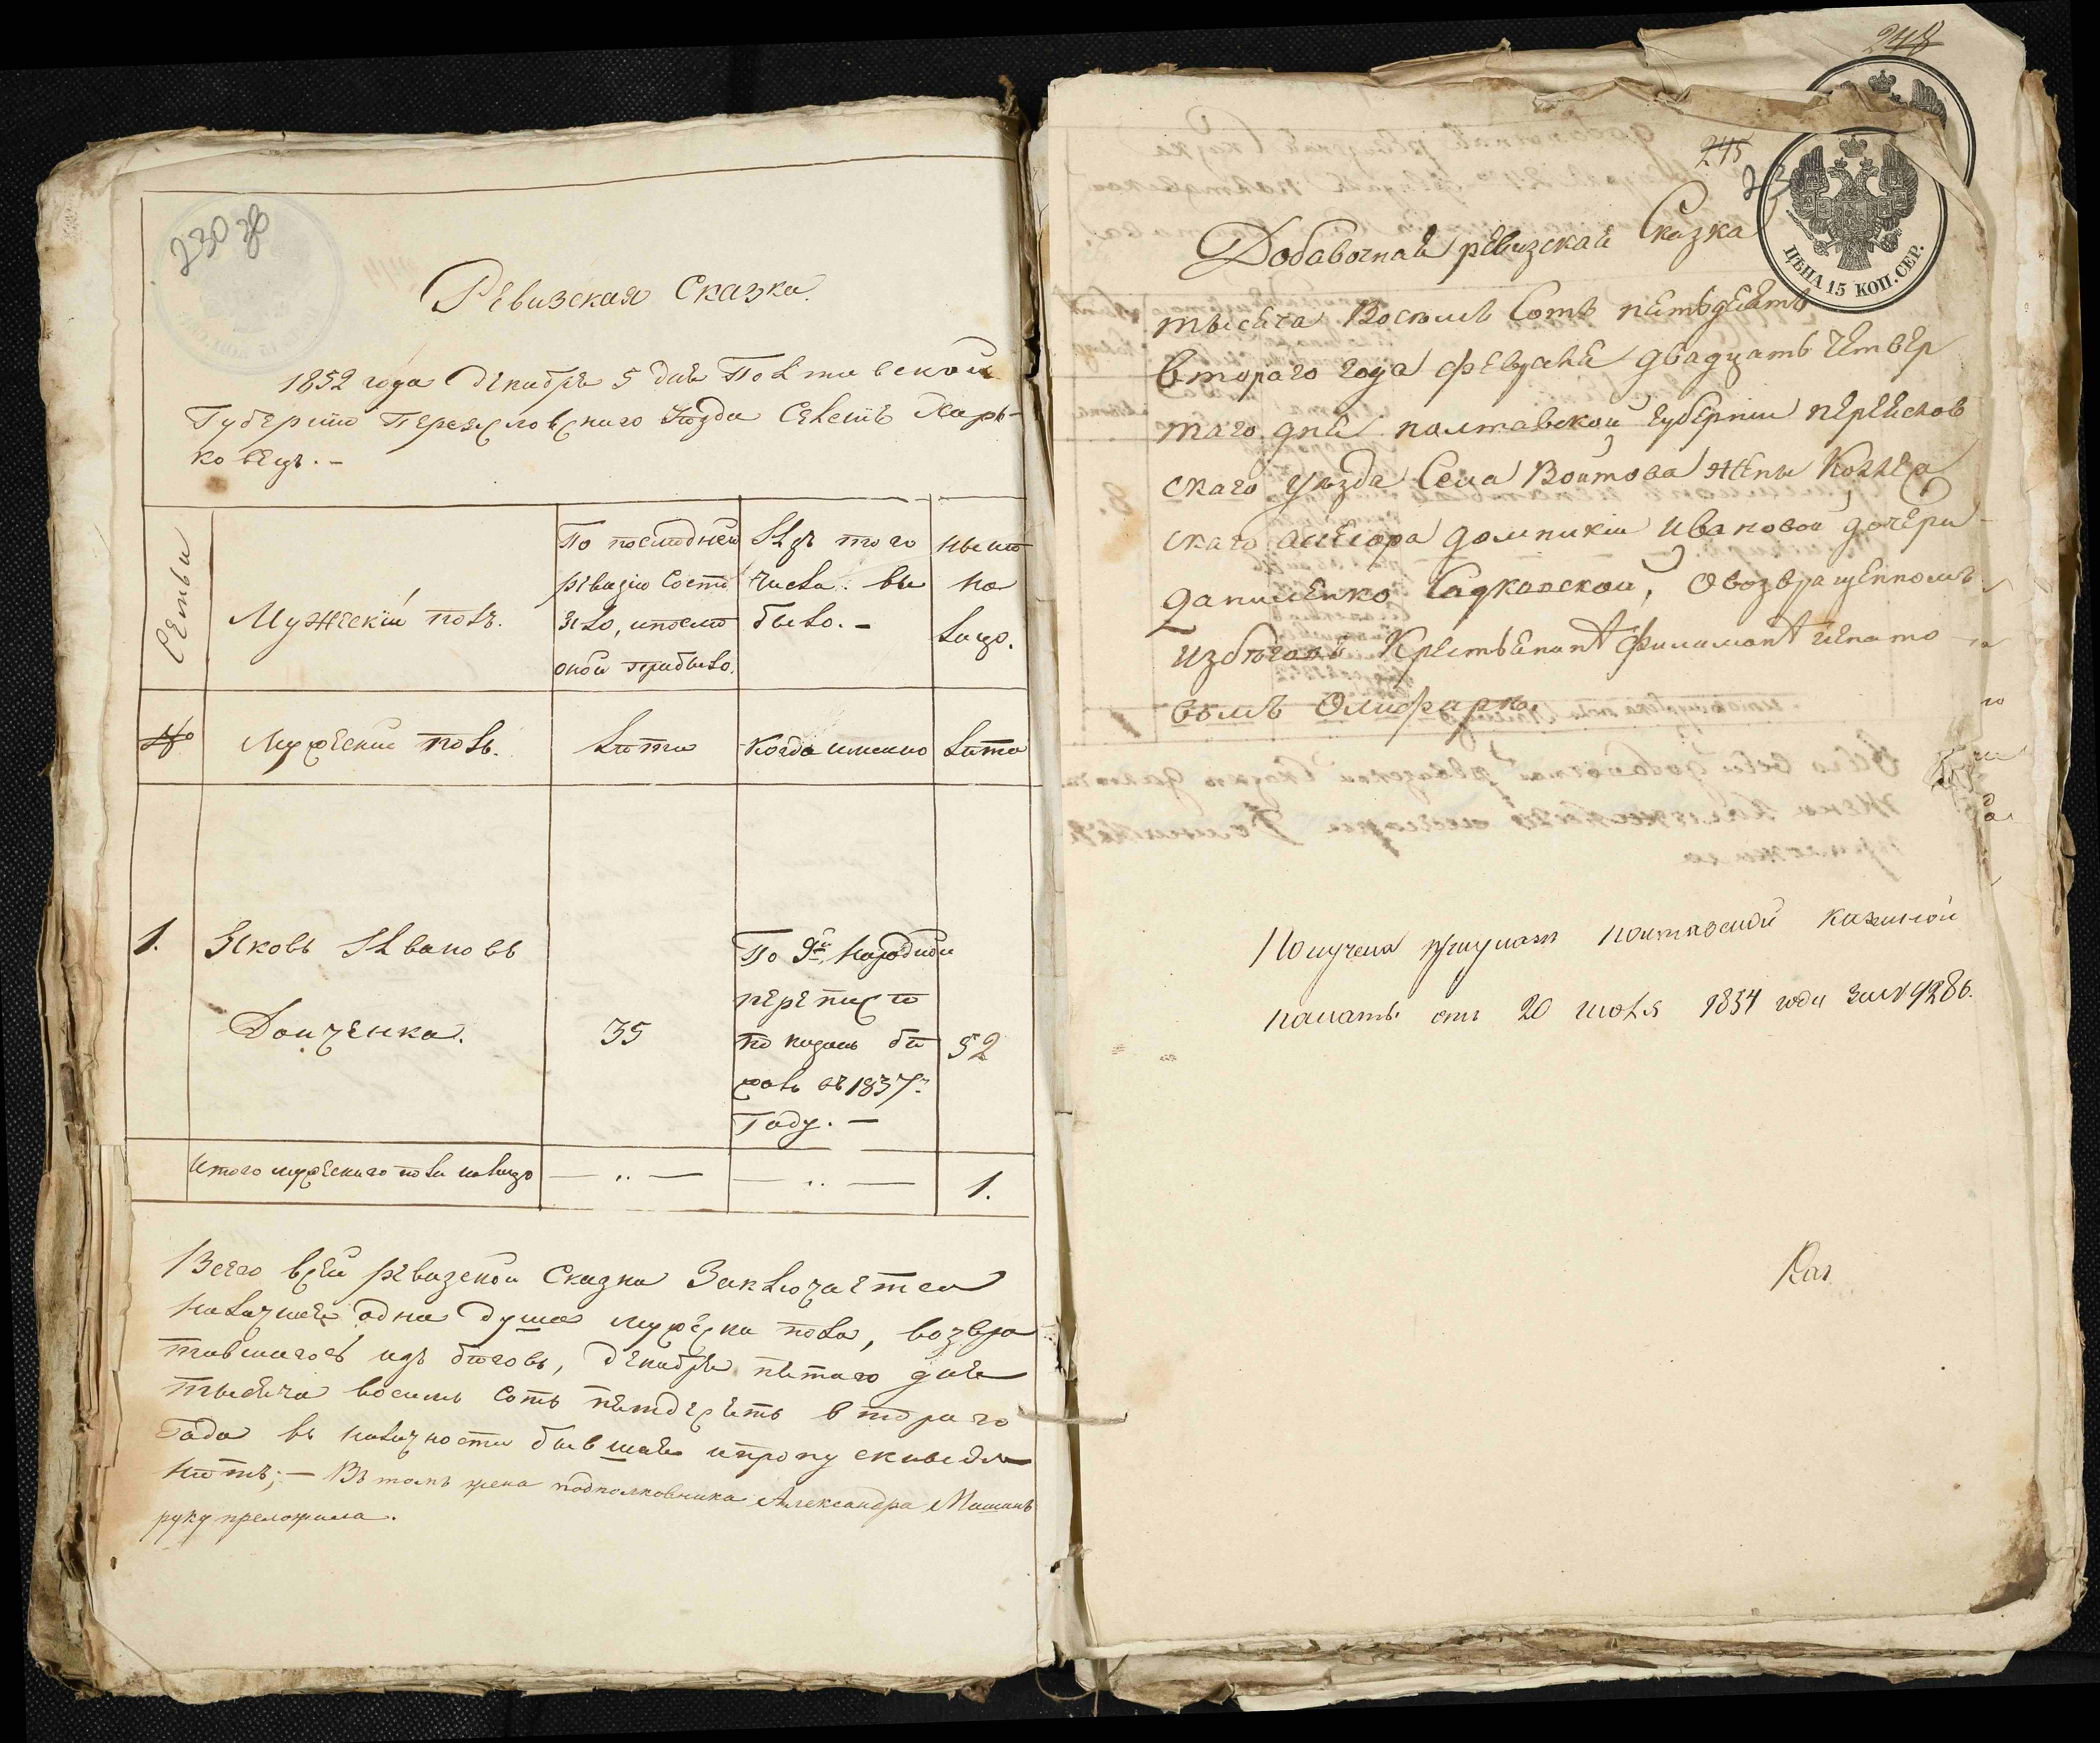 230 об
Ревизская Сказка.
1852 года Декабря 5 дня Полтавской
Губернии Переясловскаго Уезда Селения Харь-
ковец. -
Семьи
Мужескій полъ.
По последней
ревизіи состо
яло, и после
оной прибыло.
Изъ того
числа вы
было. -
Ныне
на
лицо.
№
Мужеский полъ.
Лета
Когда именно
Лета
1.
Яковъ Ивановъ
Доиченка.
35
По 9й народной
переписи
показанъ бе
жалъ въ 1837м
Году. -
52
Итого мужескаго пола налицо
— .. —
— .. —
1.
Всего в сей ревизской Сказки Заключается
наличная одна душа мужеска пола, возвра
тившагось изъ бегов, декабря пятаго дня
тысяча восемь сотъ пятдесять втораго
Года въ наличности бывшая и пропускиведл
нетъ; - Въ томъ жена подполковника Александра
руку преложила.
248
245
23
ЦѢНА 15 КОП. СЕР.
Добавочная ревизская Сказка
тысяча Восемь Сотъ пятьдесятъ
втораго года февраля двадцать четвер
таго дня полтавской губернии переяслов
скаго уезда Села Войтова жены Коллеж
скаго домникии Ивановой дочери
Садковской, о возвращенномъ
из бегов Крестьянине Филимоне Игнато
вомъ Олифирки
Получена при указе полтавской казенной
палаты от 20 июля 1854 года за № 9286.
Каз